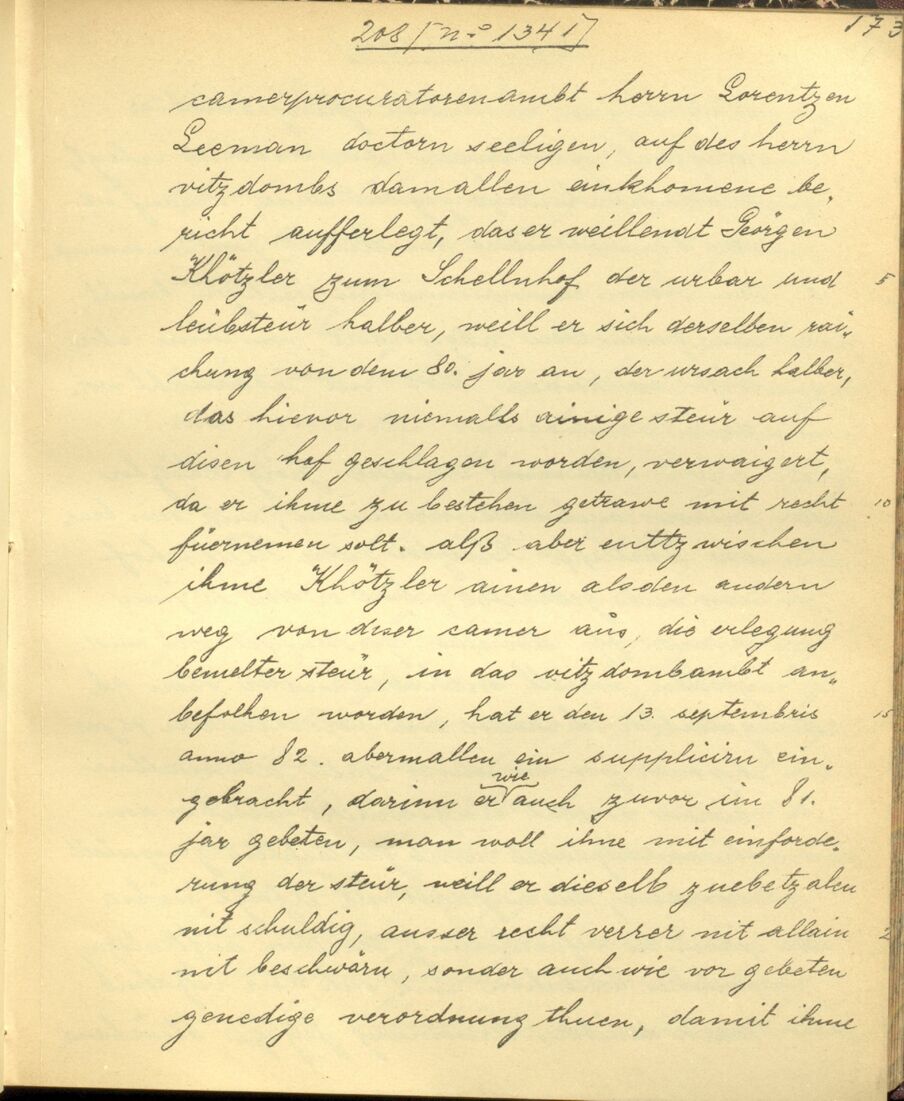 208 [nº 134 1] 173
camerprocuratorenambt herrn Lorentzen
Leeman doctorn seeligen, auf des herrn
vitzdombs damallen einkhomene be„
richt aufferlegt, das er weillendt Geörgen
Khötzler zum Schellnhof der urbar und 5
leübsteür halber, weill er sich derselben rai„
chung von dem 80. jar an, der ursach halber,
das hievor niemalls ainige steür auf
disen hof geschlagen worden, verwaigert,
da er ihme zu bestehen getrawe mit recht 10
füernemen solt. alß aber enttzwischen
ihme Khötzler ainen als den andern
weg von diser camer aüs, die erlegung
bemelter steür, in das vitzdombambt an„
befolhen worden, hat er den 13. septembris 15
anno 82. abermallen ein supplicirn ein„
gebracht, darinn er wie auch zuvor im 81.
jar gebeten, man woll ihne mit einforde„
rung der steür, weill er dieselb zuebetzalen
nit schuldig, ausser recht verrer nit allain 2
nit beschwärn, sonder auch wie vor gebeten
genedige verordnung thuen, damit ihme